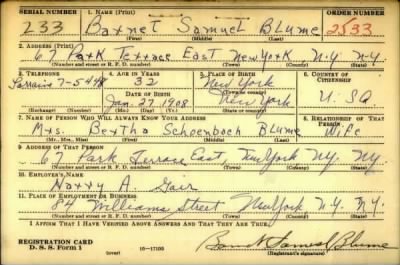 SERIAL NUMBER 1. NAME (Print) ORDER NUMBER
233 Barnet Samuel Blume 2533
(First) (Middle) (Last)
2. ADDRESS (Print)
67 Park Terrace East New York N.Y. N.Y.
(Number and street or R. F. D. number) (Town) (County) (State)
3. TELEPHONE 4. AGE IN YEARS 5. PLACE OF BIRTH 6. COUNTRY OF CITIZENSHIP
Lorraine 7-5448 32 New York
DATE OF BIRTH (Town or county)
Jan. 27 1908 New York U.S.A
(Exchange) (Number) (Mo.) (Day) (Yr.) (State or country)
7. NAME OF PERSON WHO WILL ALWAYS KNOW YOUR ADDRESS 8. RELATIONSHIP OF THAT PERSON
Mrs. Bertha Schoenbach Blume Wife
(Mr., Mrs., Miss) (First) (Middle) (Last)
9. ADDRESS OF THAT PERSON
67 Park Terrace East, New York N.Y. N.Y.
(Number and street or R. F. D. number) (Town) (County) (State)
10. EMPLOYER'S NAME
Harry A. Gair
11. PLACE OF EMPLOYMENT OR BUSINESS
84 Williams Street New York N.Y. N.Y.
(Number and street or R. F. D. number) (Town) (County) (State)
I AFFIRM THAT I HAVE VERIFIED ABOVE ANSWERS AND THAT THEY ARE TRUE.
REGISTRATION CARD
D. S. S. Form 1 (over) 16-17105 Barnet Samuel Blume
(Registrant's signature)